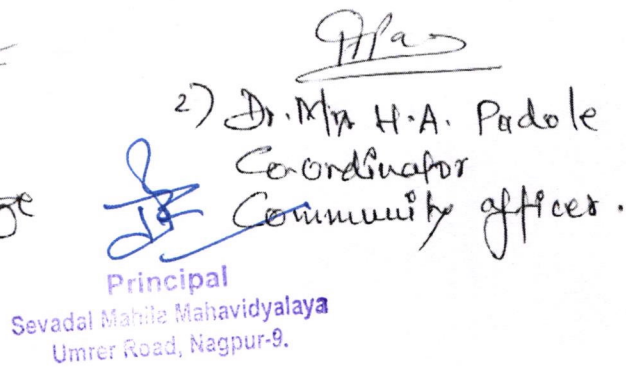 2) Dr. Mrs H.A. Padole
Co-ordinator
Community officer.
Principal
Sevadal Mahila Mahavidyalaya
Umrer Road, Nagpur-9.